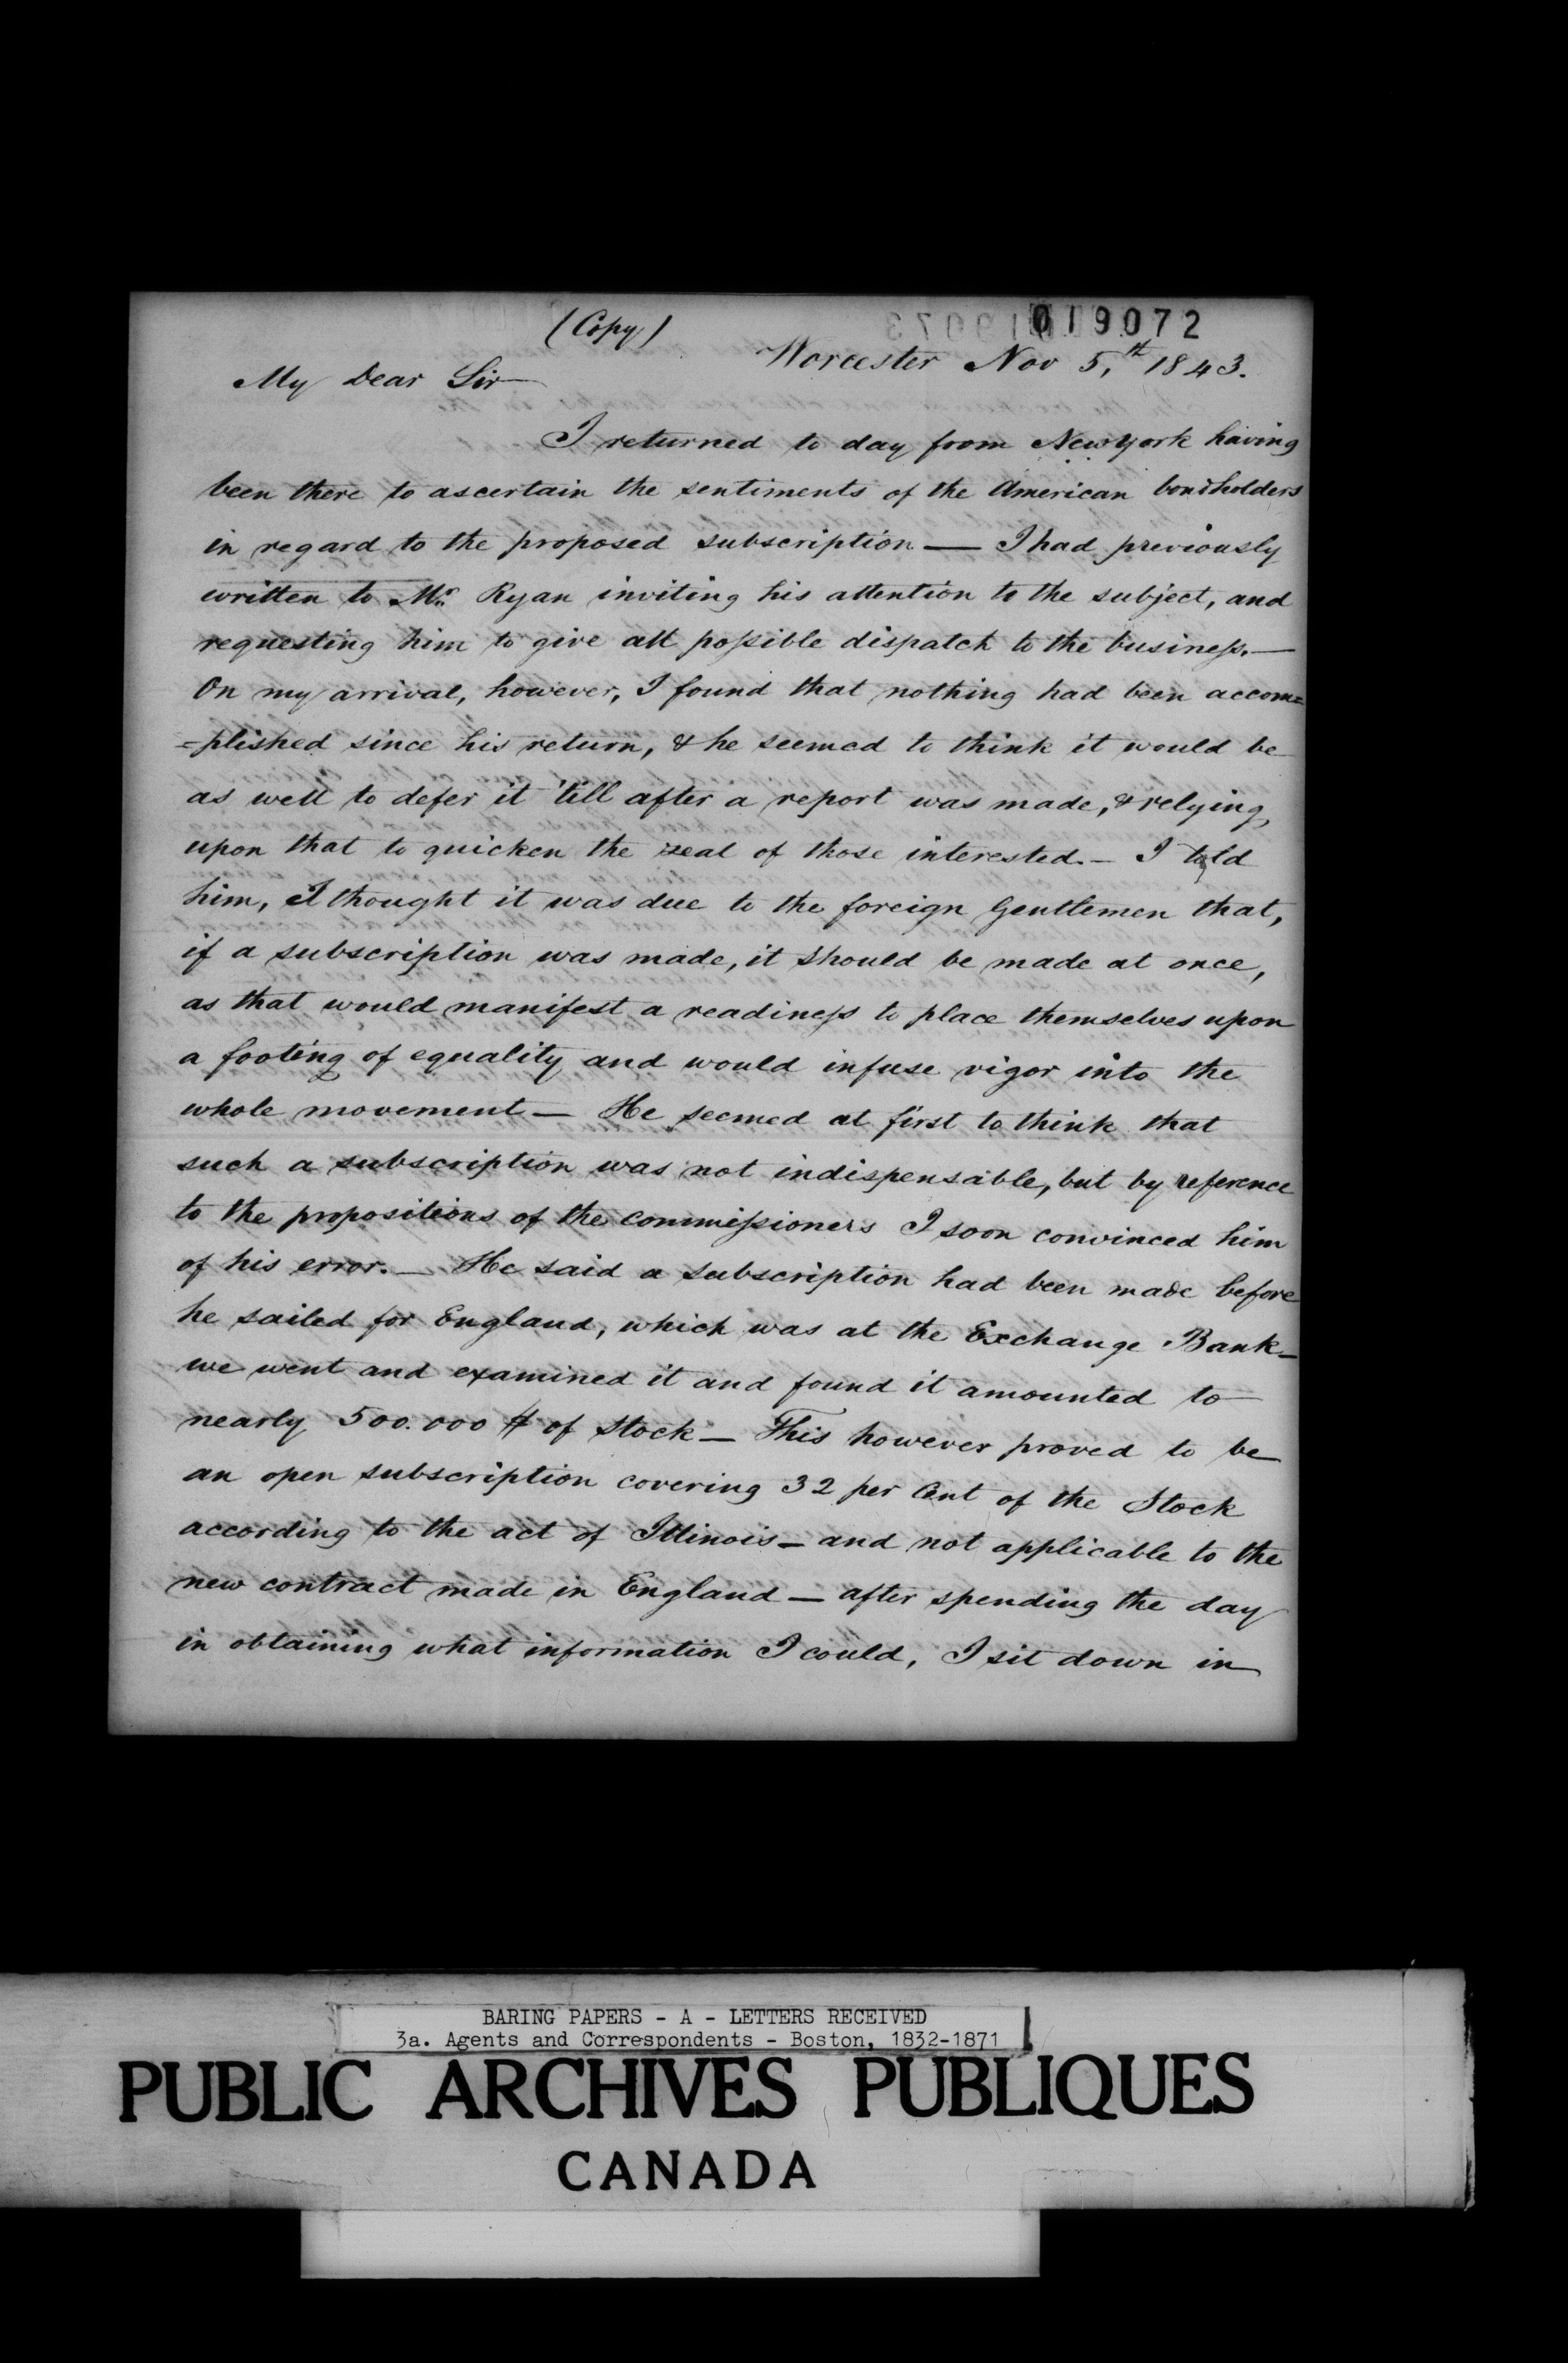 (Copy)
019072
Worcester Nov 5,th 1843.
My Dear Sir
I returned to day from New York having
been there to ascertain the sentiments of the American bondholders
in regard to the proposed subscription — I had previously
written to Mr. Ryan inviting his attention to the subject, and
requesting him to give all possible dispatch to the business. —
On my arrival, however, I found that nothing had been accom=
=plished since his return, & he seemed to think it would be
as well to defer it 'till after a report was made, & relying
upon that to quicken the zeal of those interested. — I told
him, I thought it was due to the foreign Gentlemen that,
if a subscription was made, it should be made at once,
as that would manifest a readiness to place themselves upon
a footing of equality and would infuse vigor into the
whole movement — He seemed at first to think that
such a subscription was not indispensable, but by reference
to the propositions of the commissioners I soon convinced him
of his error. — He said a subscription had been made before
he sailed for England, which was at the Exchange Bank —
we went and examined it and found it amounted to
nearly 500.000 $ of Stock — This however proved to be
an open subscription covering 32 per Cent of the Stock
according to the act of Illinois — and not applicable to the
new contract made in England — after spending the day
in obtaining what information I could, I sit down in
BARING PAPERS - A - LETTERS RECEIVED
3a. Agents and Correspondents - Boston, 1832-1871
PUBLIC ARCHIVES PUBLIQUES
CANADA